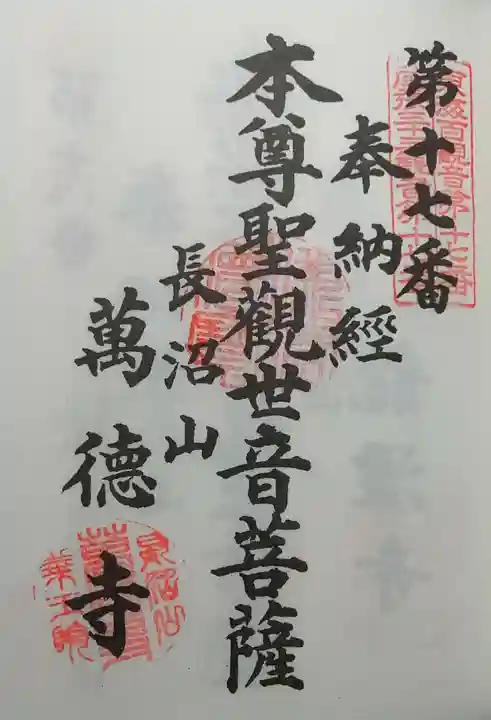 第十七番
奉納經
本尊聖觀世音菩薩
長沼山
萬德寺